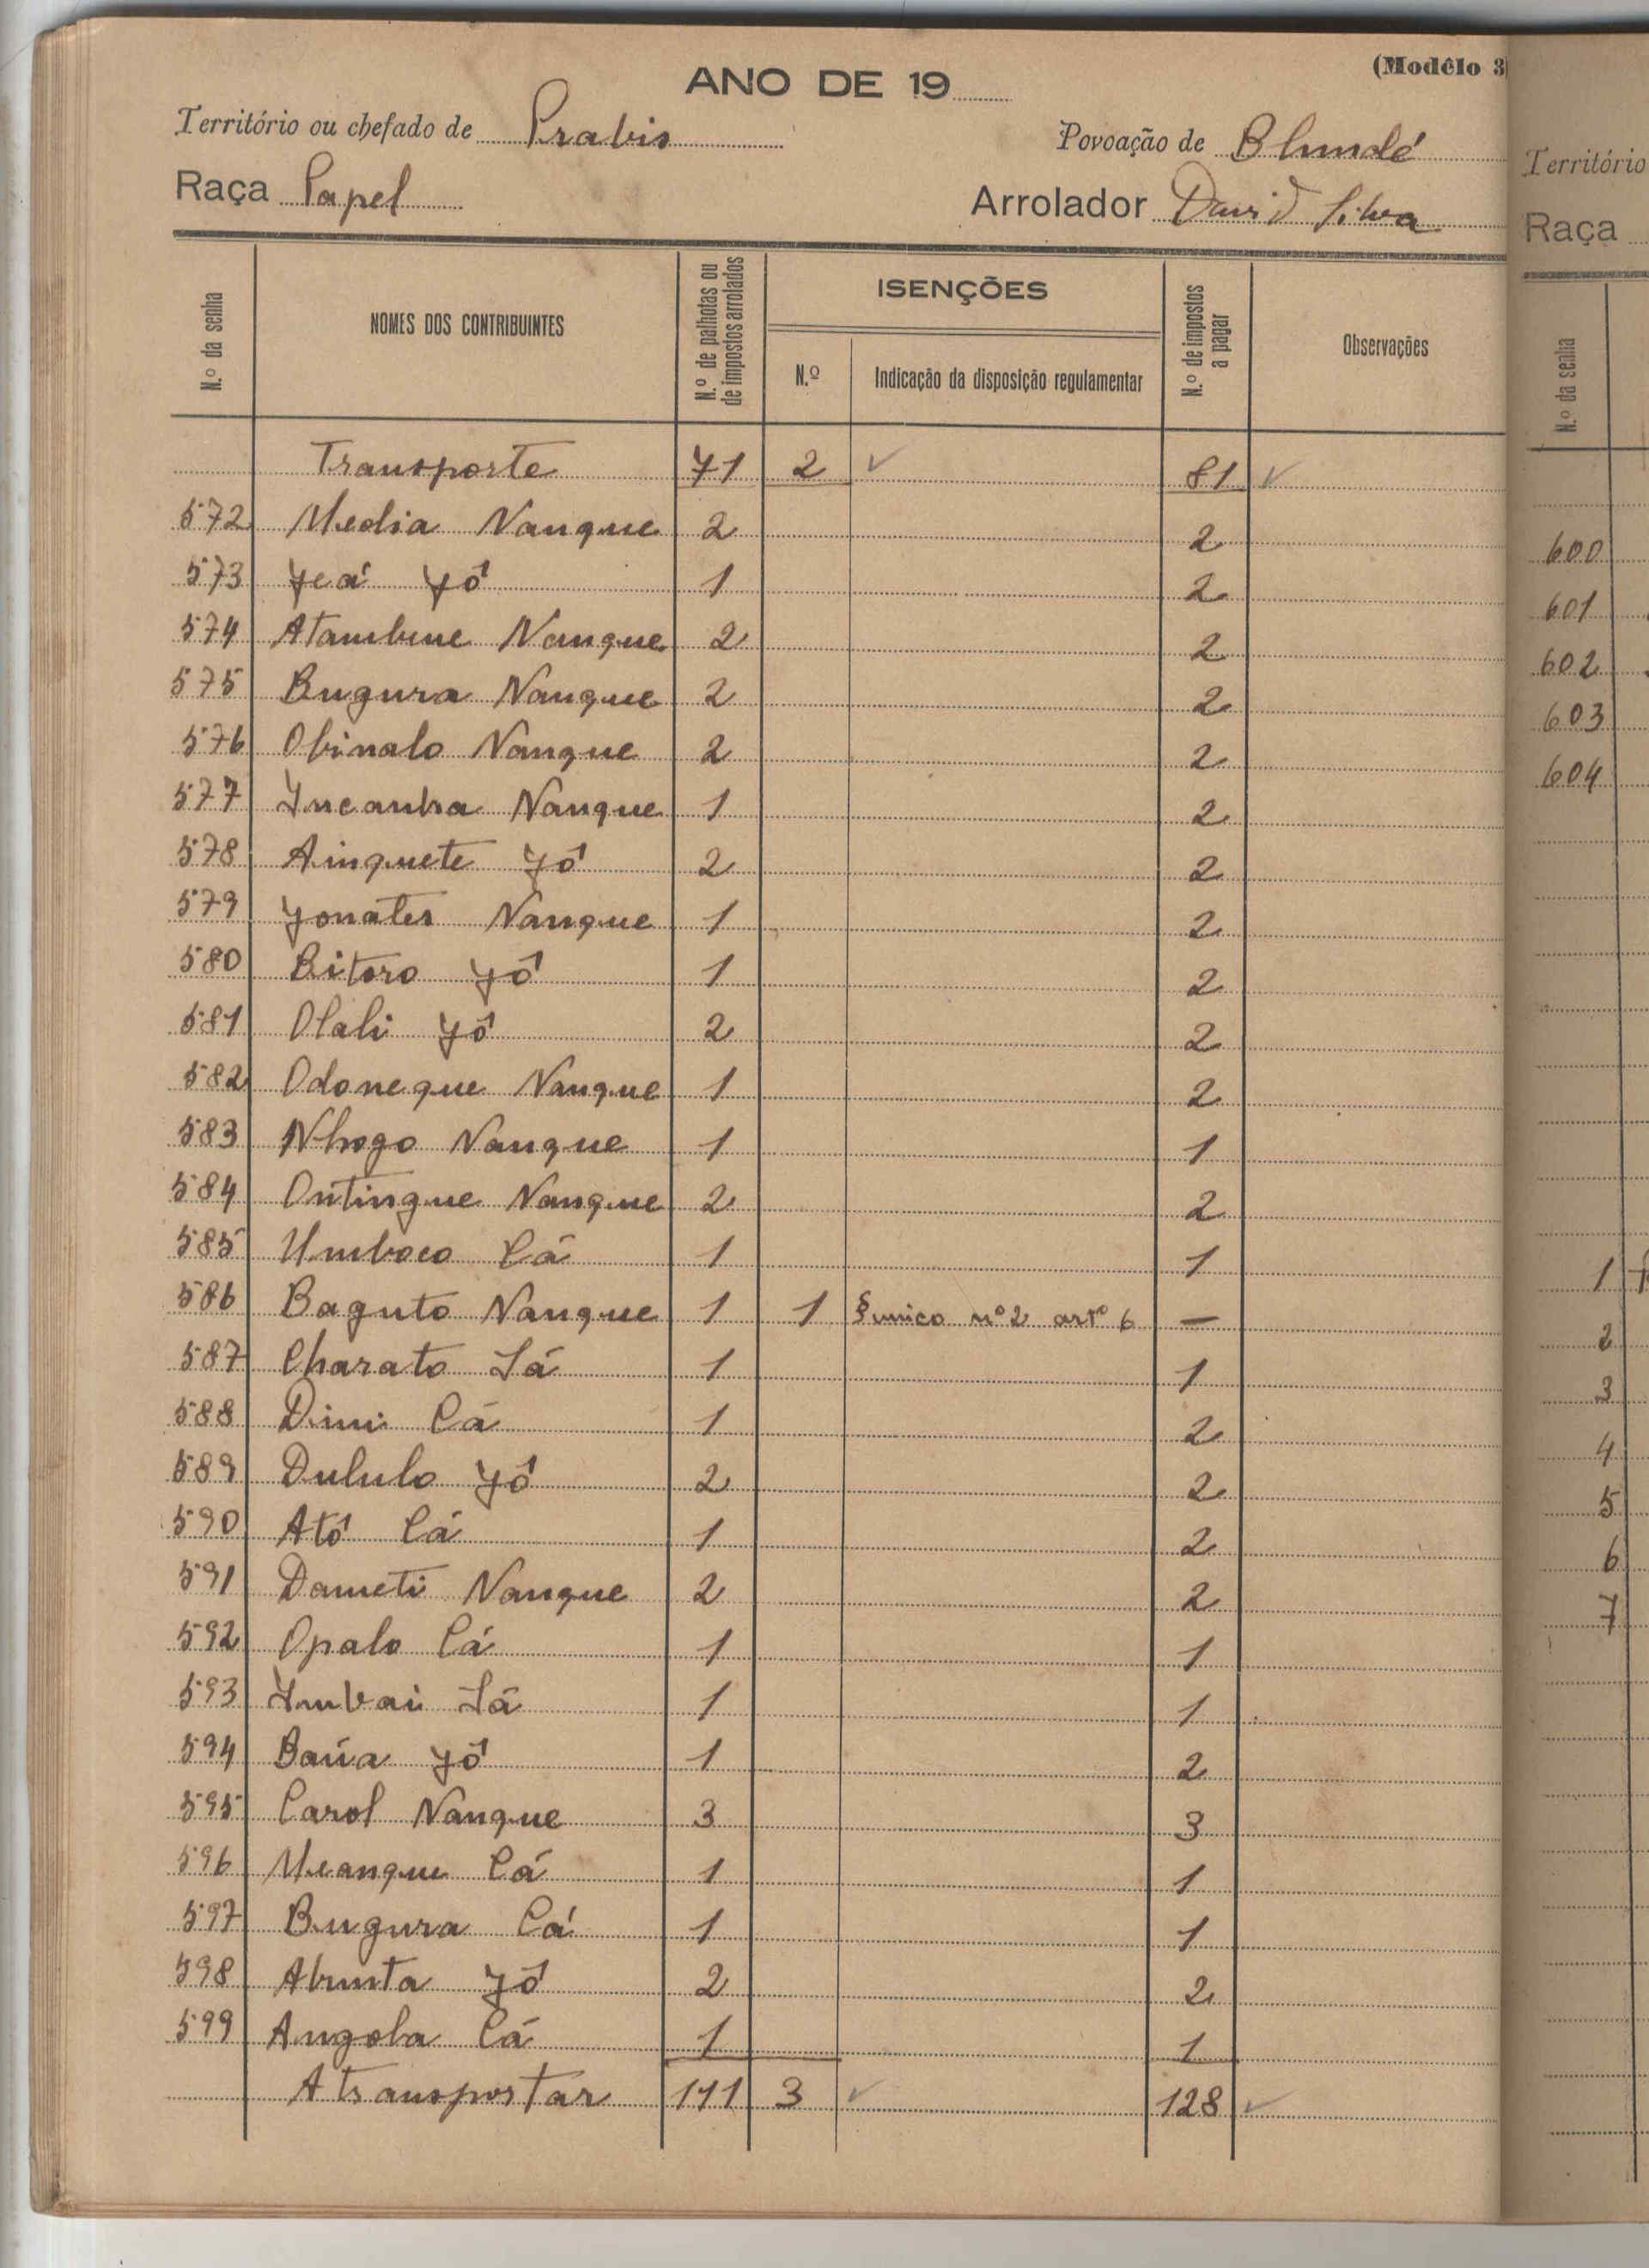 (Modêlo 3
ANO DE 19
Território ou chefado de Prabis
Povoação de Blundé
Raça Papel
Arrolador David Silva
N.º da senha
NOMES DOS CONTRIBUINTES
N.º de palhotas ou de impostos arrolados
ISENÇÕES
N.º
Indicação da disposição regulamentar
N.º de impostos a pagar
Observações
Transporte 71 2 ✓ 81 ✓
572 Media Nanque 2 2
573 Yeá Yô 1 2
574 Atambene Nanque 2 2
575 Bugura Nanque 2 2
576 Obinalo Nanque 2 2
577 Yncanha Nanque 1 2
578 Ainquete Yô 2 2
579 Yonates Nanque 1 2
580 Bitoro Yô 1 2
581 Olali Yô 2 2
582 Odoneque Nanque 1 2
583 Nhogo Nanque 1 1
584 Ontingue Nanque 2 2
585 Umboco Cá 1 1
586 Baguto Nanque 1 1 § unico nº 2 artº 6 —
587 Charato Sá 1 1
588 Dimi Cá 1 2
589 Dululo Yô 2 2
590 Atô Cá 1 2
591 Dameti Nanque 2 2
592 Opalo Cá 1 1
593 Ymbai Sá 1 1
594 Baúa Yô 1 2
595 Carol Nanque 3 3
596 Meanque Cá 1 1
597 Bugura Cá 1 1
598 Abunta Yô 2 2
599 Angola Cá 1 1
A transportar 111 3 ✓ 128 ✓
Território
Raça
N.º da senha
600
601
602
603
604
1
2
3
4
5
6
7